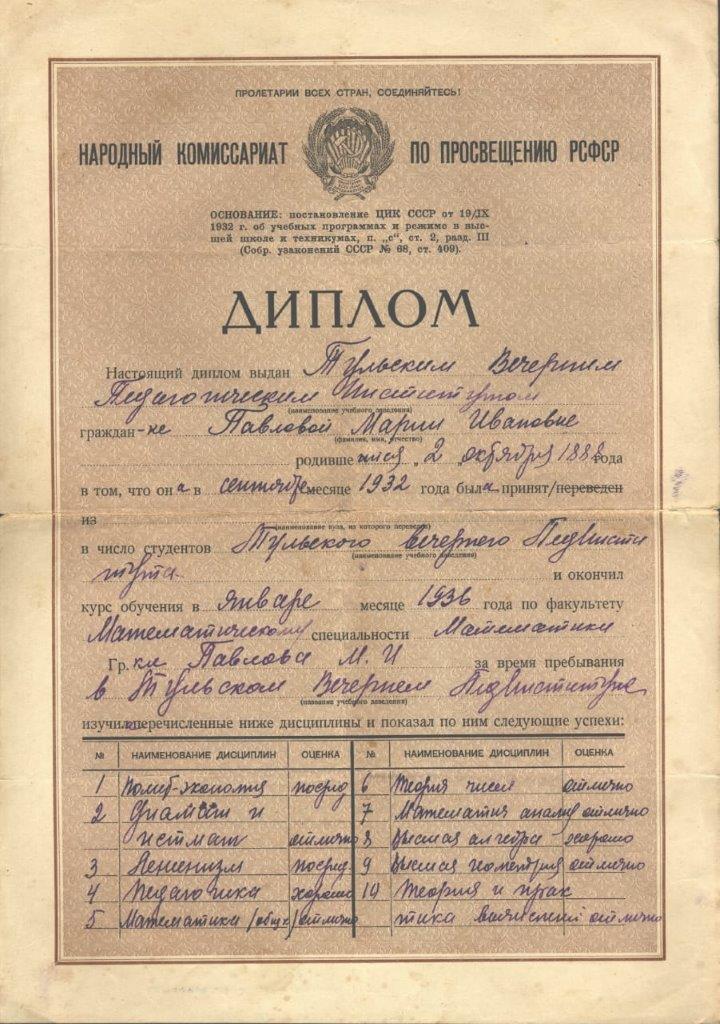 ПРОЛЕТАРИИ ВСЕХ СТРАН, СОЕДИНЯЙТЕСЬ!
НАРОДНЫЙ КОМИССАРИАТ ПО ПРОСВЕЩЕНИЮ РСФСР
ОСНОВАНИЕ: постановление ЦИК СССР от 19/IX
1932 г. об учебных программах и режиме в выс-
шей школе и техникумах, п. „с“, ст. 2, разд. III
(Собр. узаконений СССР № 68, ст. 409).
ДИПЛОМ
Настоящий диплом выдан Тульским Вечерним
Педагогическим Институтом
(наименование учебного заведения)
граждан-ке Павловой Марии Ивановне
(фамилия, имя, отчество)
родившейся „2 „октября 1888 года
в том, что она в сентябре месяце 1932 года была принят/переведен
из
(наименование вуза, из которого переведен)
в число студентов Тульского вечернего Пединсти
(наименование учебного заведения)
тута и окончил
курс обучения в январе месяце 1936 года по факультету
Математическому специальности Математики
Гр.ка Павлова М. И за время пребывания
в Тульском Вечернем Пединституте
(название учебного заведения)
изучила перечисленные ниже дисциплины и показал по ним следующие успехи:
№ НАИМЕНОВАНИЕ ДИСЦИПЛИН ОЦЕНКА № НАИМЕНОВАНИЕ ДИСЦИПЛИН ОЦЕНКА
1 Полит-экономия посред 6 Теория чисел отлично
2 Диамат и 7 Математич анализ отлично
истмат отлично 8 Высшая алгебра хорошо
3 Ленинизм посред. 9 Высшая геометрия отлично
4 Педагогика хорошо 10 Теория и прак
5 Математика (общ) отлично тика вычислений отлично